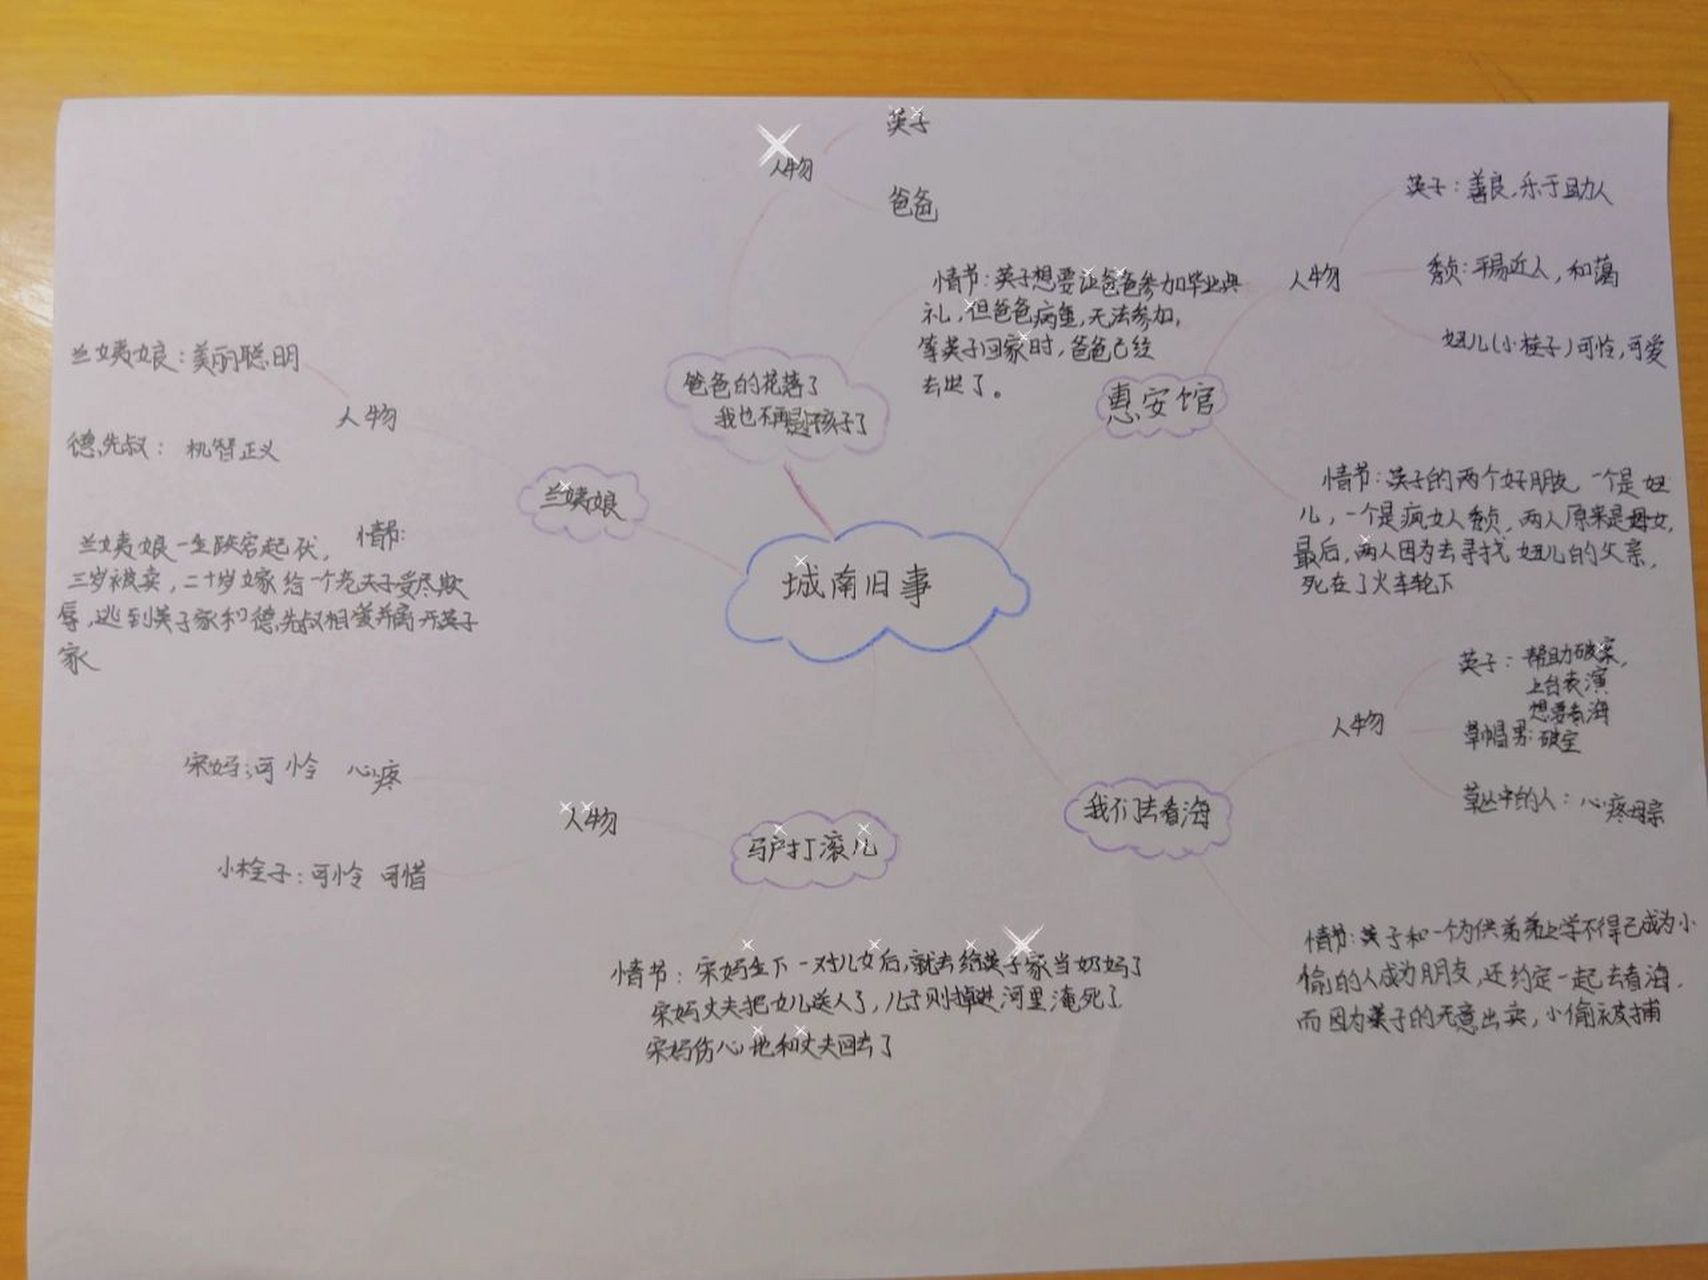 城南旧事
爸爸的花落了
我也不再是孩子了
人物
英子
爸爸
情节：英子想要让爸爸参加毕业典
礼，但爸爸病重，无法参加，
等英子回家时，爸爸已经
去世了。
惠安馆
人物
英子：善良，乐于助人
秀贞：平易近人，和蔼
妞儿(小桂子)可怜，可爱
情节：英子的两个好朋友，一个是妞
儿，一个是疯女人秀贞，两人原来是母女，
最后，两人因为去寻找妞儿的父亲，
死在了火车轮下
我们去看海
人物
英子：帮助破案，
上台表演
想要看海
草帽男：破案
草丛中的人：心疼母亲
情节：英子和一个为供弟弟上学不得已成为小
偷的人成为朋友，还约定一起去看海，
而因为英子的无意出卖，小偷被捕
驴打滚儿
人物
宋妈：可怜 心疼
小栓子：可怜 可惜
情节：宋妈生下一对儿女后，就去给英子家当奶妈了
宋妈丈夫把女儿送人了，儿子则掉进河里淹死了
宋妈伤心地和丈夫回去了
兰姨娘
人物
兰姨娘：美丽聪明
德先叔：机智正义
情节：
兰姨娘一生跌宕起伏，
三岁被卖，二十岁嫁给一个老夫子受尽欺
辱，逃到英子家和德先叔相爱并离开英子
家